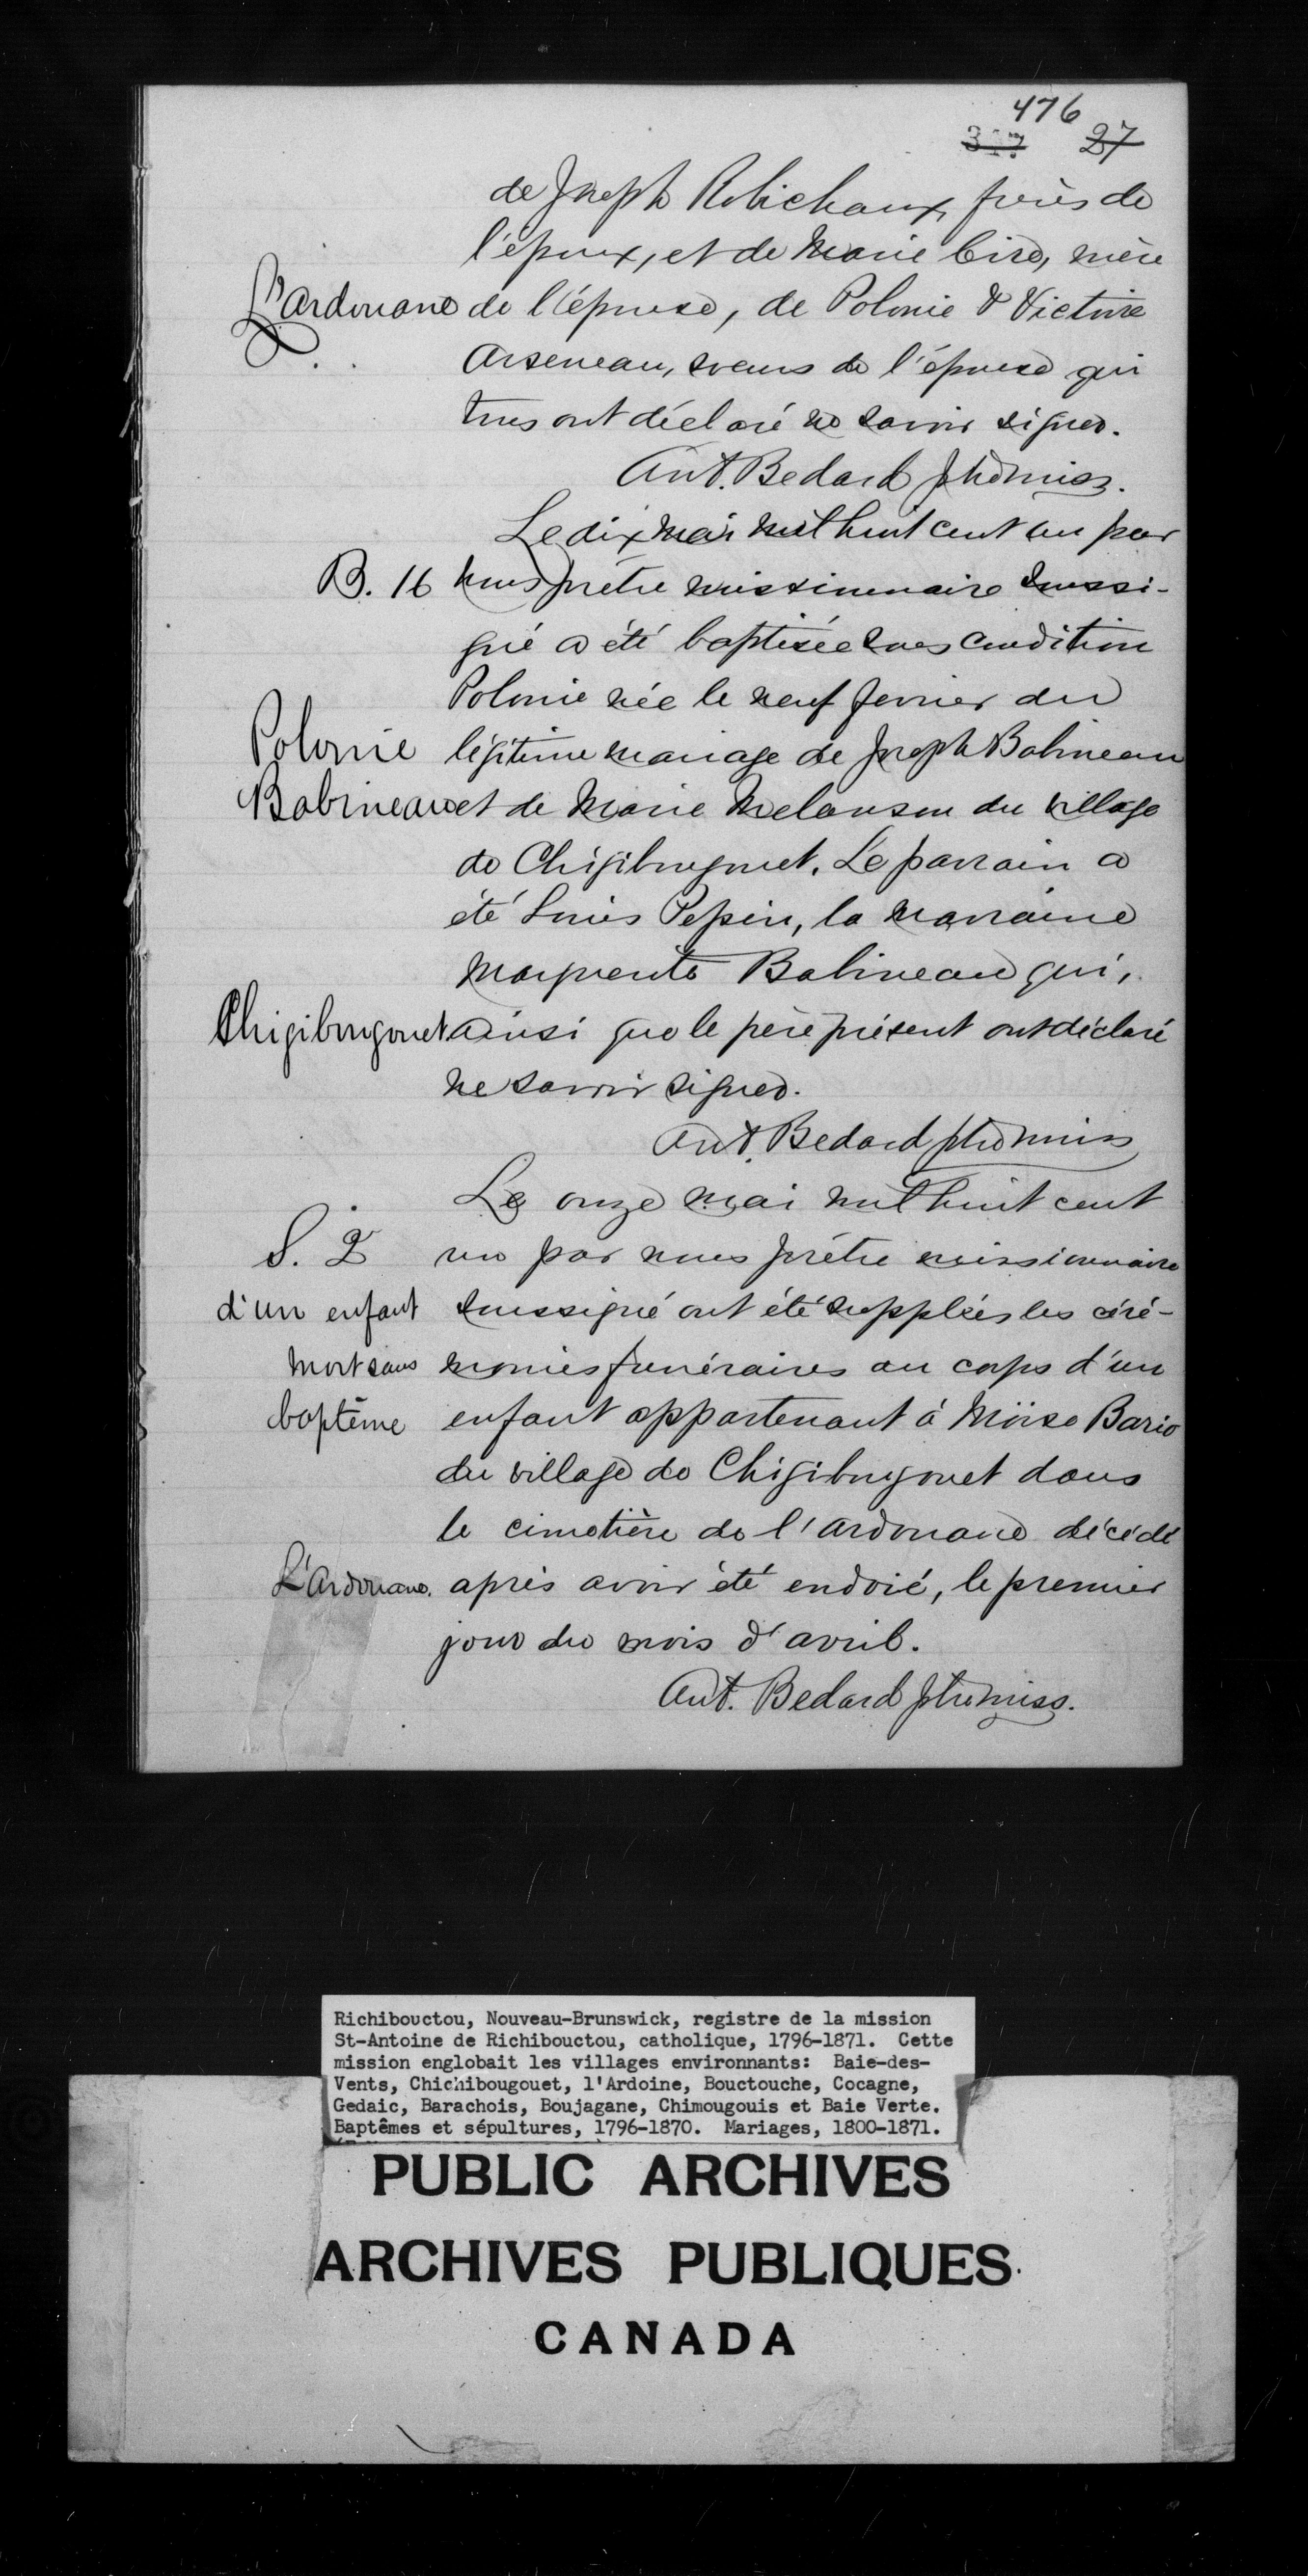 476
317 27
de Joseph Robichaux, frères de
l'époux, et de Marie Cire, mère
L'ardouane de l'épouse, de Polonie & Victoire
Arseneau, soeurs de l'épouse qui
tous ont déclaré ne savoir signer.
Ant. Bedard ptre miss.
Le dix mai mil huit cent un par
B. 16 nous prêtre missionnaire soussi-
gné a été baptisée sous condition
Polonie née le neuf fevrier du
Polonie légitime mariage de Joseph Babineau
Babineau et de Marie Melanson du village
de Chigibougouet. Le parrain a
été Louis Pepin, la marraine
Marguerite Babineau qui,
Chigibougouet ainsi que le père présent ont déclaré
ne savoir signer.
Ant. Bedard ptre miss
Le onze mai mil huit cent
S. 2 un par nous prêtre missionnaire
d'un enfant soussigné ont été suppléés les céré-
mort sans monies funéraires au corps d'un
baptême enfant appartenant à Möise Bario
du village de Chigibougouet dans
le cimetière de l'ardouane décédé
L'Ardouane. après avoir été endoié, le premier
jour du mois d'avril.
Ant. Bedard ptre miss.
Richibouctou, Nouveau-Brunswick, registre de la mission
St-Antoine de Richibouctou, catholique, 1796-1871. Cette
mission englobait les villages environnants: Baie-des-
Vents, Chichibougouet, l'Ardoine, Bouctouche, Cocagne,
Gedaic, Barachois, Boujagane, Chimougouis et Baie Verte.
Baptêmes et sépultures, 1796-1870. Mariages, 1800-1871.
PUBLIC ARCHIVES
ARCHIVES PUBLIQUES
CANADA